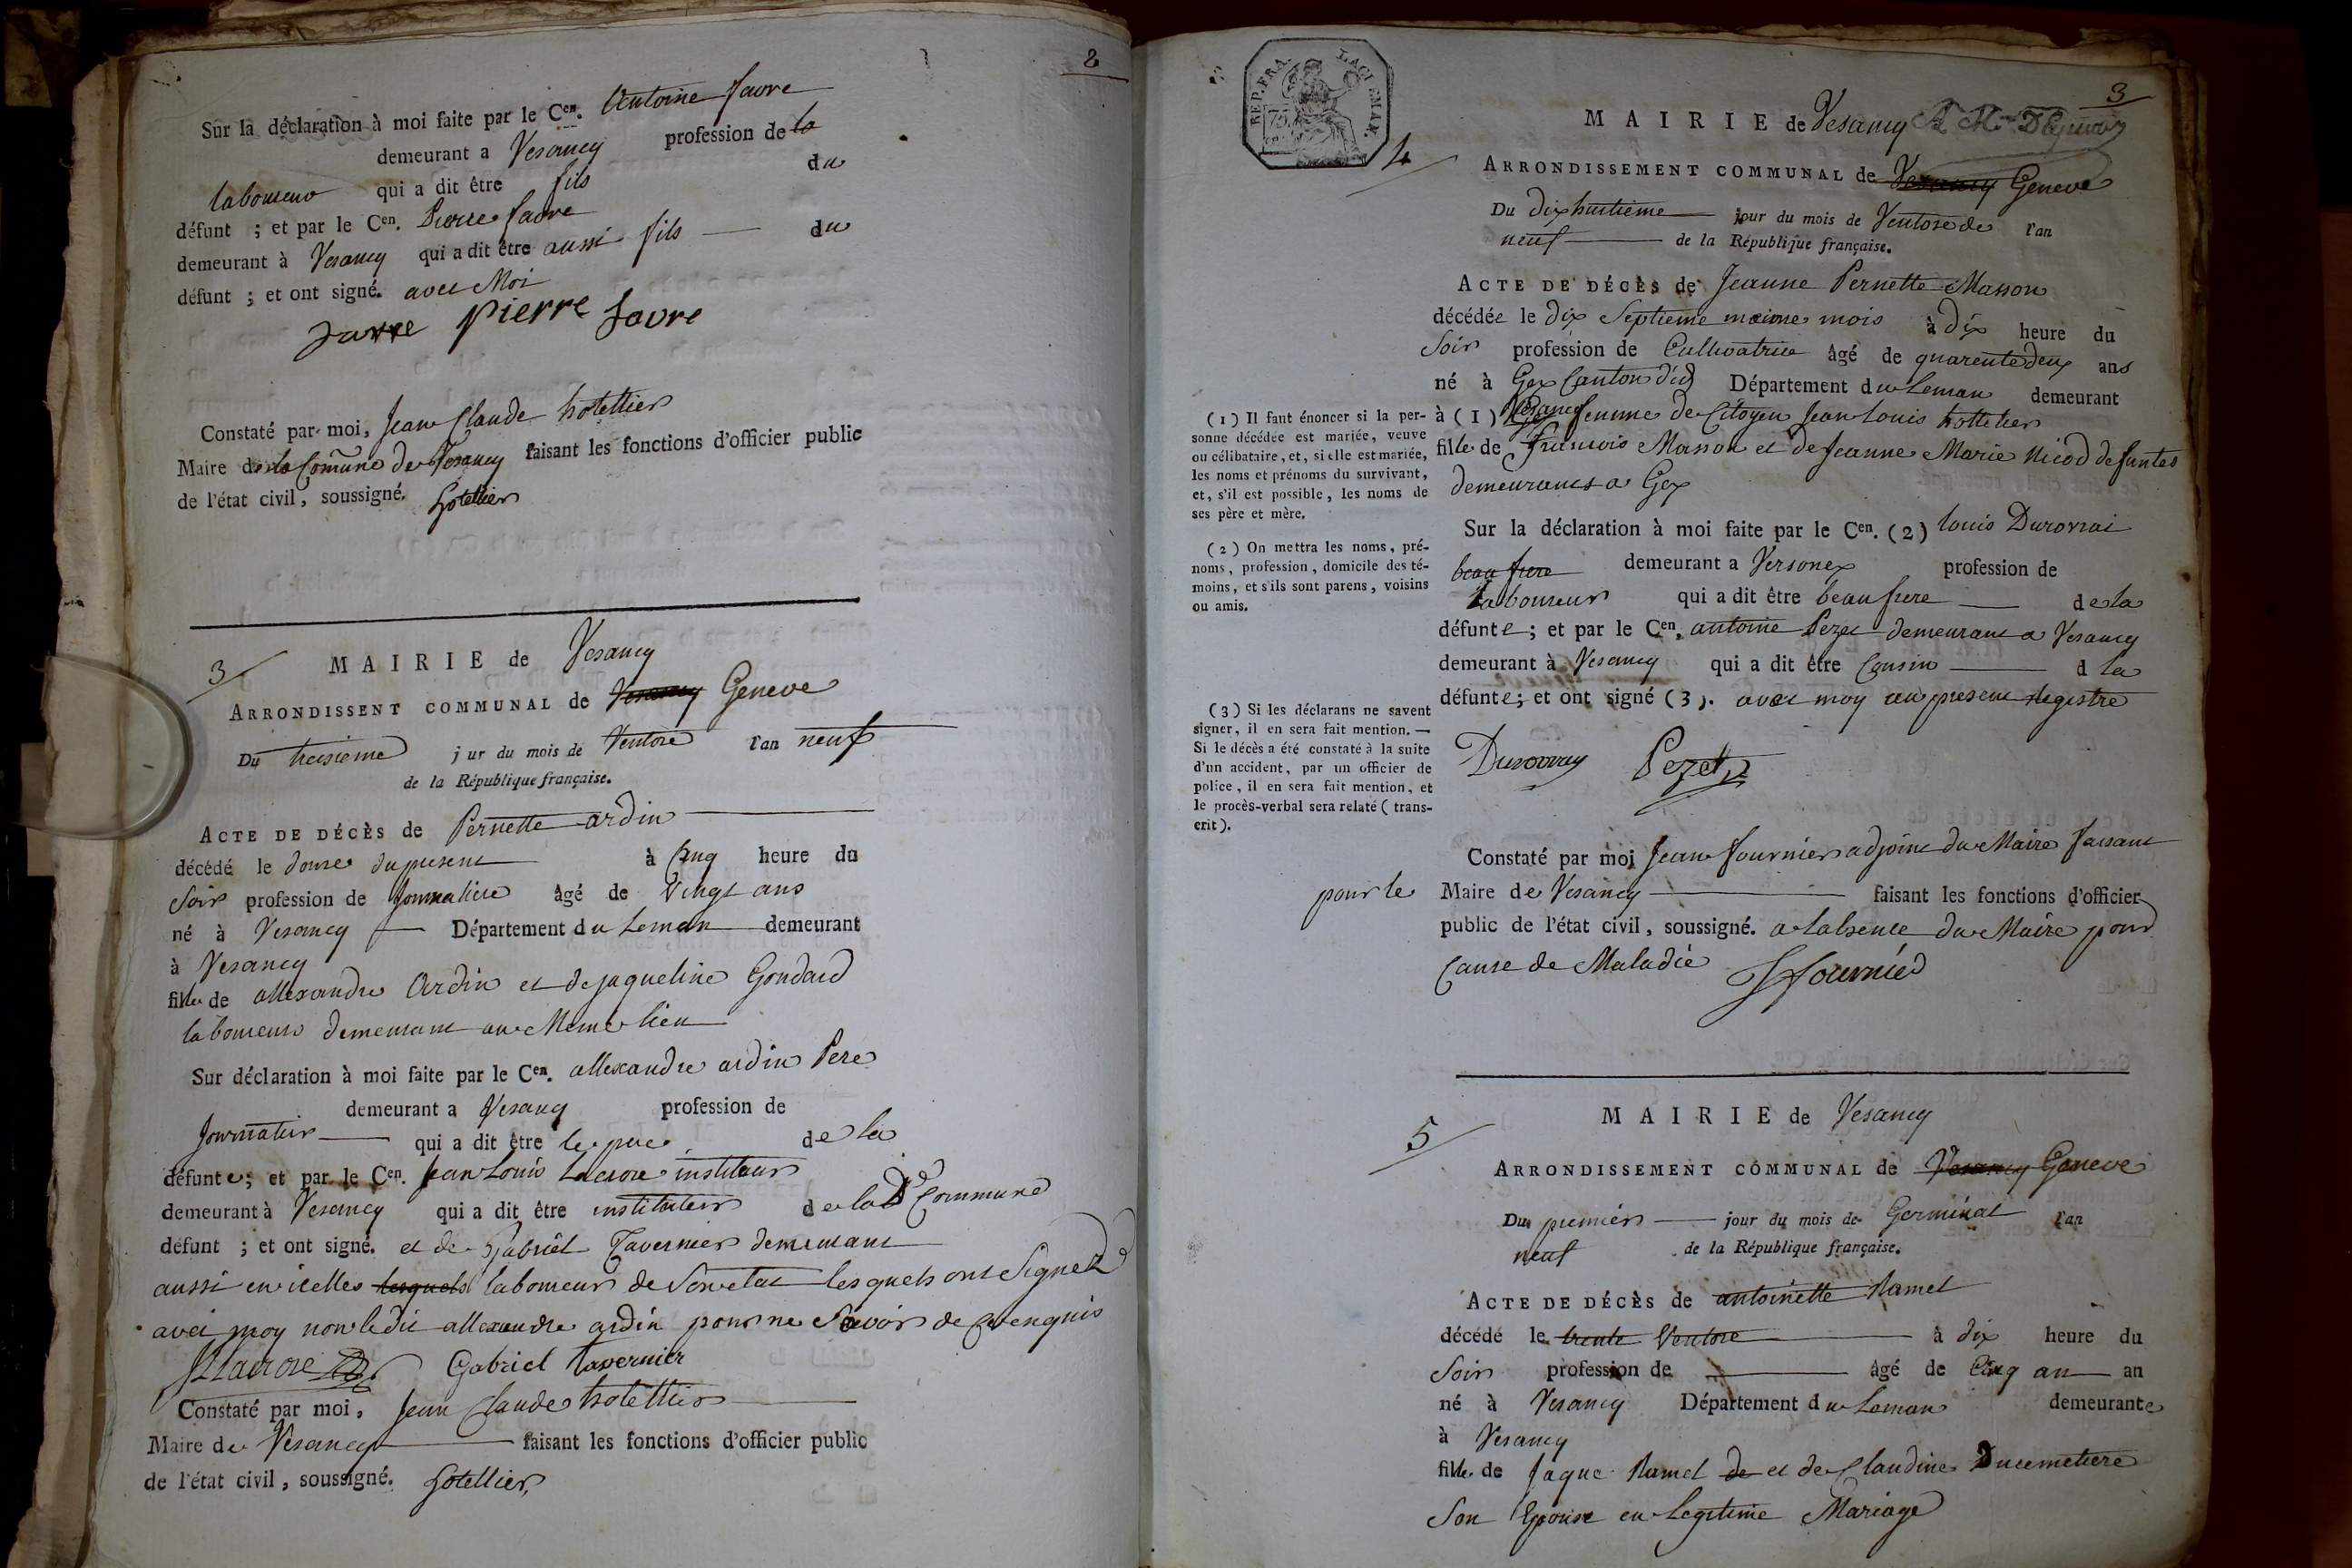 2
Sur la déclaration à moi faite par le Cen. Antoine favre
demeurant a Vesancy profession de la
laboureur qui a dit être fils du
défunt ; et par le Cen. Pierre favre
demeurant à Vesancy qui a dit être aussi fils — du
défunt ; et ont signé. avec Moi
favre Pierre favre
Constaté par moi, Jean Claude hotellier
Maire de la Comune de Vesancy faisant les fonctions d'officier public
de l'état civil, soussigné. hotellier
3
MAIRIE de Vesancy
ARRONDISSENT COMMUNAL de Vesancy Geneve
Du treisieme j ur du mois de Ventose l'an neuf
de la République française.
ACTE DE DÉCÈS de Pernette ardin
décédé le douse du present à Cinq heure du
Soir profession de Journaliere âgé de Vingt ans
né à Vesancy Département du Leman demeurant
à Vesancy
fille de allexandre Ardin et de jaqueline Gondard
laboureur demeurant au Meme lieu
Sur déclaration à moi faite par le Cen. allexandre ardin Pere
demeurant a Vesancy profession de
Journalier qui a dit être le pere de la
défunte; et par le Cen. Jean Louis Lacrore instituteur
demeurant à Vesancy qui a dit être instituteur de la De Commune
défunt ; et ont signé. et de Gabriel Tavernier demeurant
aussi en icelle lesquels laboureur de Son etat lesquels ont Signez
avec moy non ledit allexandre ardin pour ne Savoir de ce enquis
JLLacrore Gabriel tavernier
Constaté par moi, Jean Claude hotellier
Maire de Vesancy faisant les fonctions d'officier public
de l'état civil, soussigné. hotellier
REP. FRA.
75
3
4
MAIRIE de Vesancy
ARRONDISSEMENT COMMUNAL de Vesancy Geneve
Du dixhuitieme jour du mois de Ventose de l'an
neuf de la République française.
ACTE DE DÉCÈS de Jeanne Pernette Masson
décédée le dix Septieme meme mois à dix heure du
Soir profession de Cultivatrice âgé de quarente deux ans
né à Gex Canton d'id Département du Leman demeurant
à (1) Vesancy femme de Citoyen Jean Louis hottelier
fille de francois Masson et de Jeanne Marie Nicod defuntes
demeurants a Gex
Sur la déclaration à moi faite par le Cen. (2) louis Durovrai
beau frere demeurant a Versonex profession de
Laboureur qui a dit être beau frere de la
défunte; et par le Cen. antoine Pezet demeurant a Vesancy
demeurant à Vesancy qui a dit être Cousin d la
défunte; et ont signé (3). avec moy au present Registre
Durovray Pezet
Constaté par moi Jean fournier adjoint du Maire faisant
pour le Maire de Vesancy faisant les fonctions d'officier
public de l'état civil, soussigné. a labsence du Maire pour
Cause de Maladie J fournier
(1) Il faut énoncer si la per-
sonne décédée est mariée, veuve
ou célibataire, et, si elle est mariée,
les noms et prénoms du survivant,
et, s'il est possible, les noms de
ses père et mère.
(2) On mettra les noms, pré-
noms, profession, domicile des té-
moins, et s'ils sont parens, voisins
ou amis.
(3) Si les déclarans ne savent
signer, il en sera fait mention. —
Si le décès a été constaté à la suite
d'un accident, par un officier de
police, il en sera fait mention, et
le procès-verbal sera relaté (trans-
crit).
5
MAIRIE de Vesancy
ARRONDISSEMENT COMMUNAL de Vesancy Geneve
Du premier jour du mois de Germinal l'an
neuf de la République française.
ACTE DE DÉCÈS de antoinette Ramel
décédé le trente Ventose à dix heure du
Soir profession de âgé de Cinq an an
né à Vesancy Département du Leman demeurante
à Vesancy
fille de Jaque Ramel de et de Claudine Ducemetiere
Son Epouse en Legitime Mariage